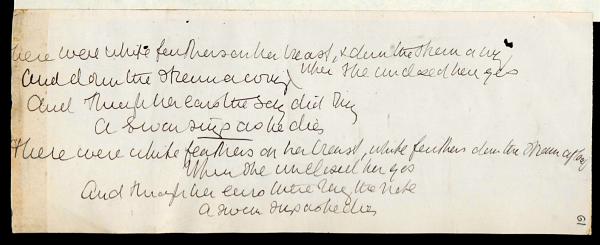 There were white feathers on her breast, & down the stream a cry
And down the stream a cry, When she unclosed her eyes
And through her ears the song did ring
A swan sings as he dies
There were white feathers on her breast, white feathers down the stream
When she unclosed her eyes
And through her ears the note
A swan sings as he dies
61